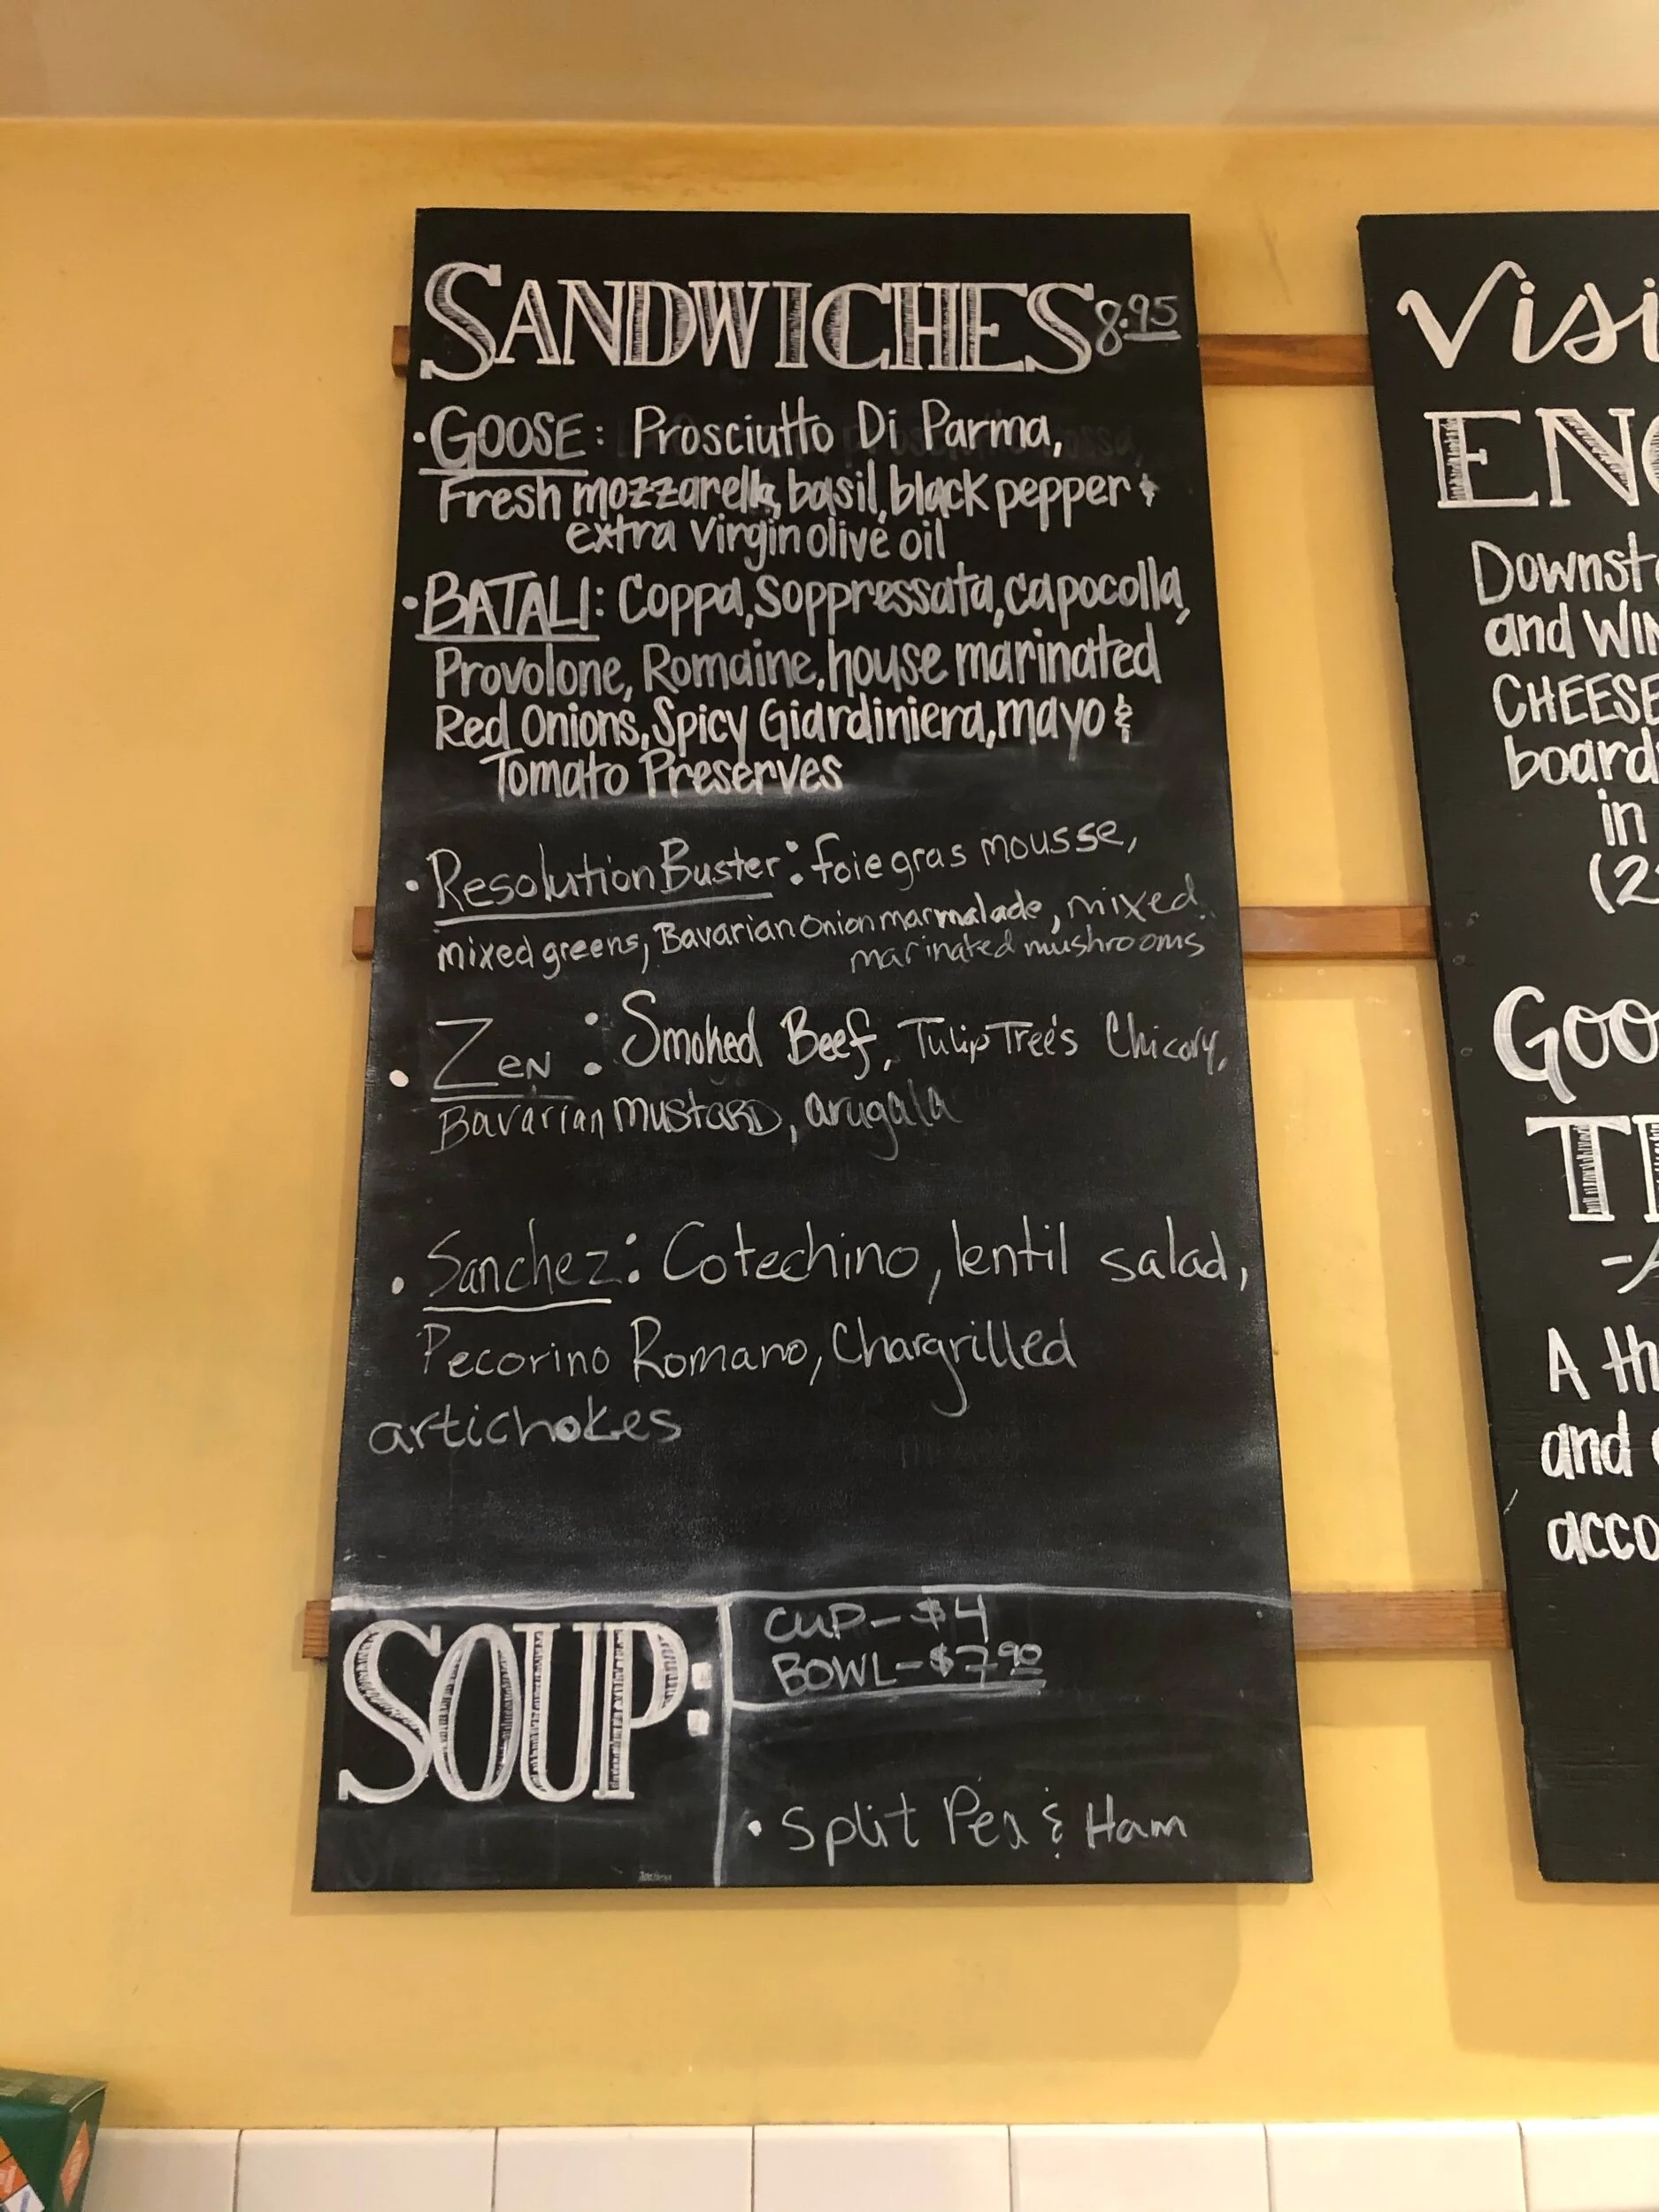 SANDWICHES 8.95
• GOOSE: Prosciutto Di Parma,
Fresh mozzarella, basil, black pepper &
extra virgin olive oil
• BATALI: Coppa, Soppressata, capocolla,
Provolone, Romaine, house marinated
Red Onions, Spicy Giardiniera, mayo &
Tomato Preserves
• Resolution Buster: foie gras mousse,
mixed greens, Bavarian Onion marmalade, mixed
marinated mushrooms
• ZEN: Smoked Beef, Tulip Tree's Chicory,
Bavarian MUSTARD, arugala
• Sanchez: Cotechino, lentil salad,
Pecorino Romano, Chargrilled
artichokes
SOUP:
CUP - $4
BOWL - $7.90
• Split Pea & Ham
Visi
ENO
Downst
and WIN
CHEESE
board
in
(2
GOO
TE
-A
A th
and
acco